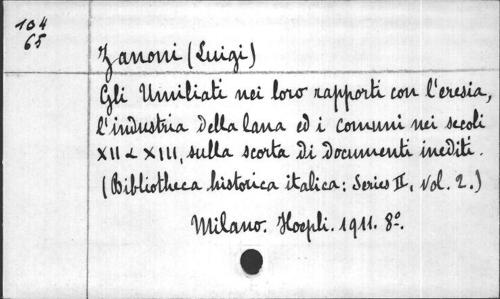 104
65
Zanoni (Luigi)
Gli Umiliati nei loro rapporti con l'eresia,
l'industria della lana ed i comuni nei secoli
XII e XIII, sulla scorta di documenti inediti.
(Bibliotheca historica italica: Series II, vol. 2.)
Milano. Hoepli. 1911. 8º.